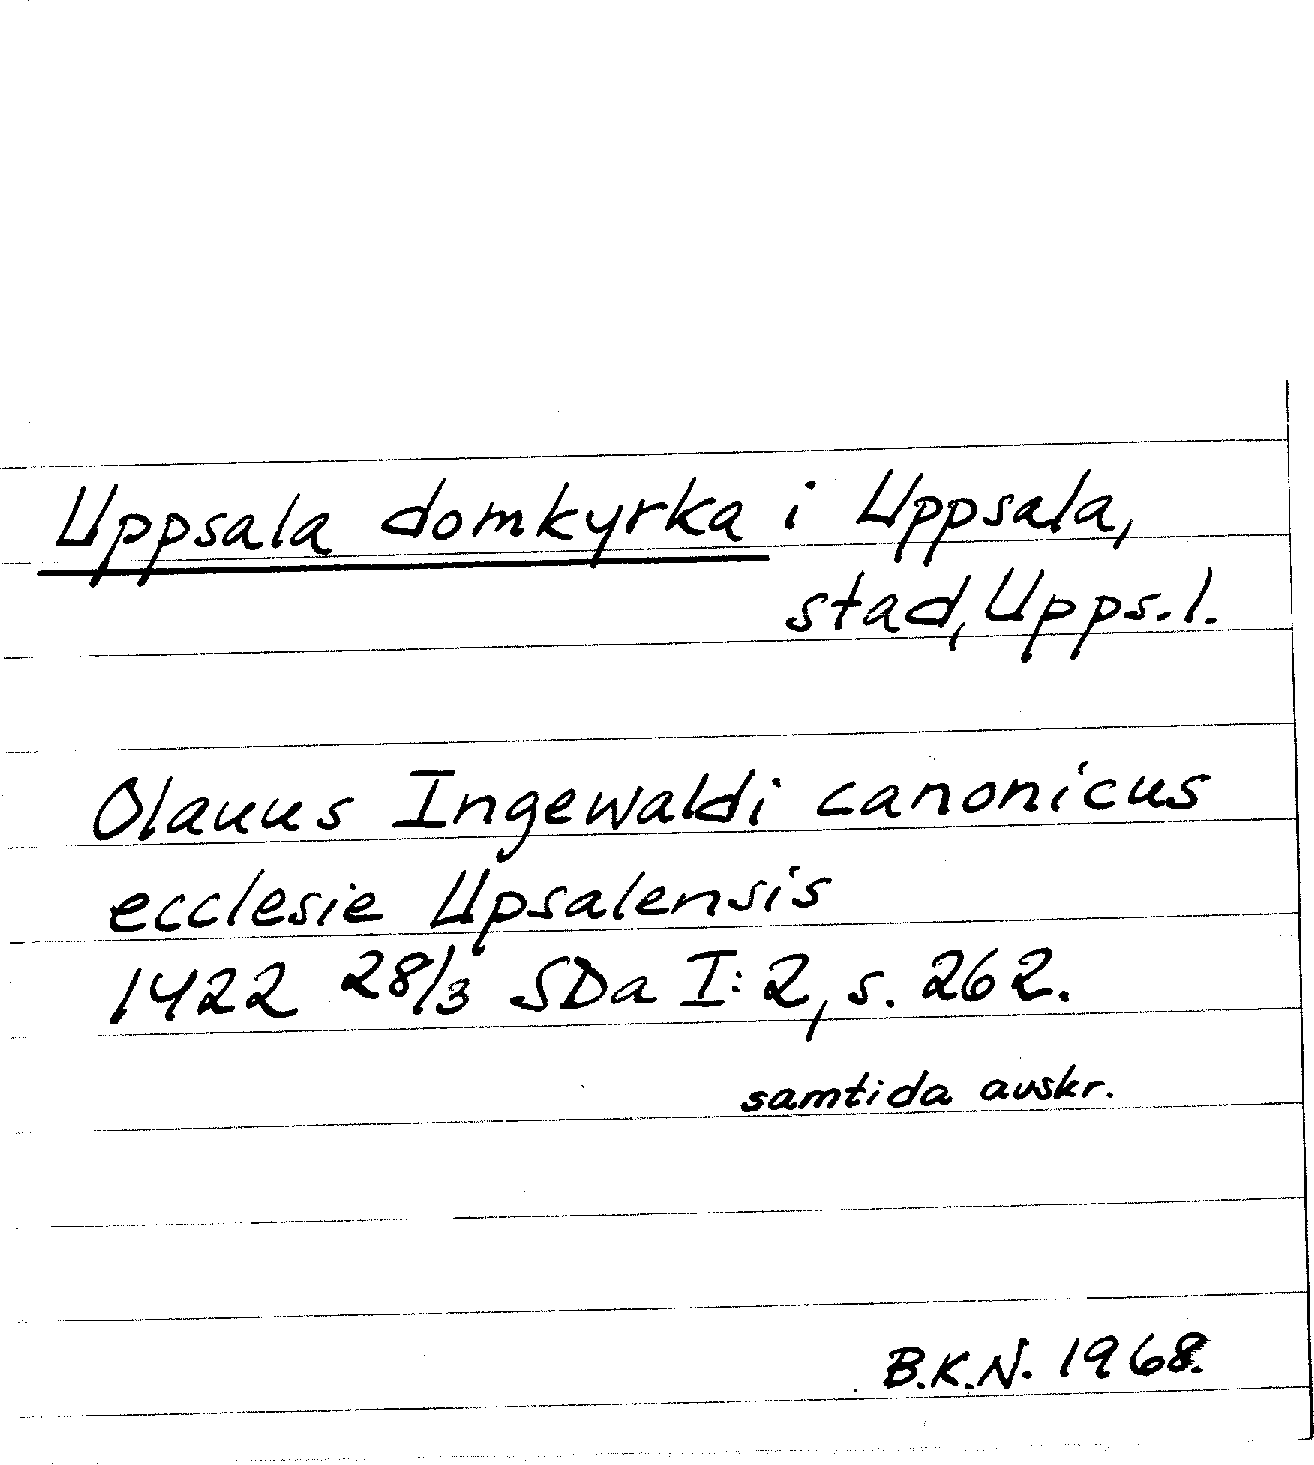 Uppsala domkyrka i Uppsala,
stad, Upps.l.
Olauus Ingewaldi canonicus
ecclesie Upsalensis
1422 28/3 SDa I:2, s. 262.
samtida avskr.
B.K.N. 1968.